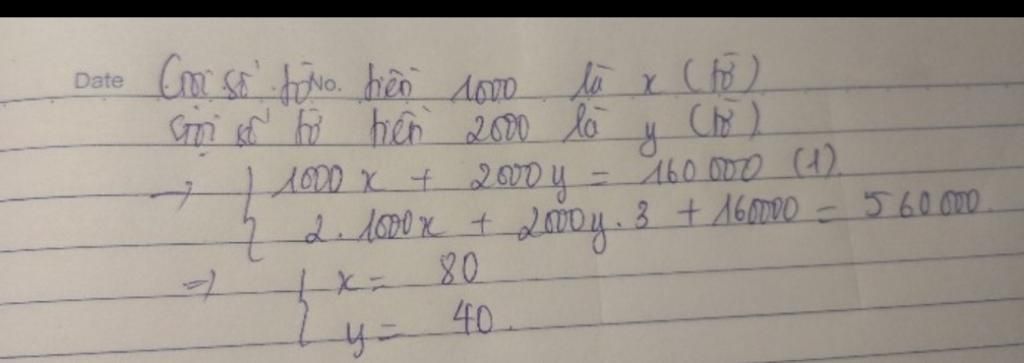 Date No. Gọi số tờ tiền 1000 là x (tờ)
Gọi số tờ tiền 2000 là y (tờ)
→ { 1000x + 2000y = 160 000 (1)
2. 1000x + 2000y. 3 + 160000 = 560 000.
=> { x = 80
y = 40.